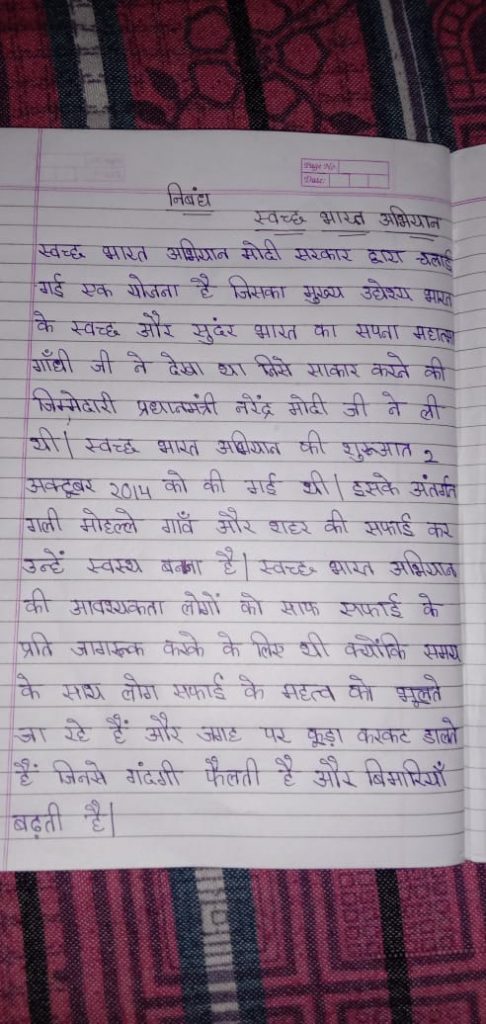 Page No.
Date:
निबंध
स्वच्छ भारत अभियान
स्वच्छ भारत अभियान मोदी सरकार द्वारा चलाई
गई एक योजना है जिसका मुख्य उद्येश्य भारत
के स्वच्छ और सुंदर भारत का सपना महात्मा
गाँधी जी ने देखा था जिसे साकार करने की
जिम्मेदारी प्रधानमंत्री नरेंद्र मोदी जी ने ली
थी| स्वच्छ भारत अभियान की शुरूआत 2
अक्टूबर 2014 को की गई थी| इसके अंतर्गत
गली मोहल्ले गाँव और शहर की सफाई कर
उन्हें स्वस्थ बनना है| स्वच्छ भारत अभियान
की आवश्यकता लोगों को साफ सफाई के
प्रति जागरूक करके के लिए थी क्योंकि समय
के साथ लोग सफाई के महत्व को भूलते
जा रहे हैं और जगह पर कूड़ा करकट डालते
हैं जिनसे गंदगी फैलती है और बिमारियाँ
बढ़ती है|